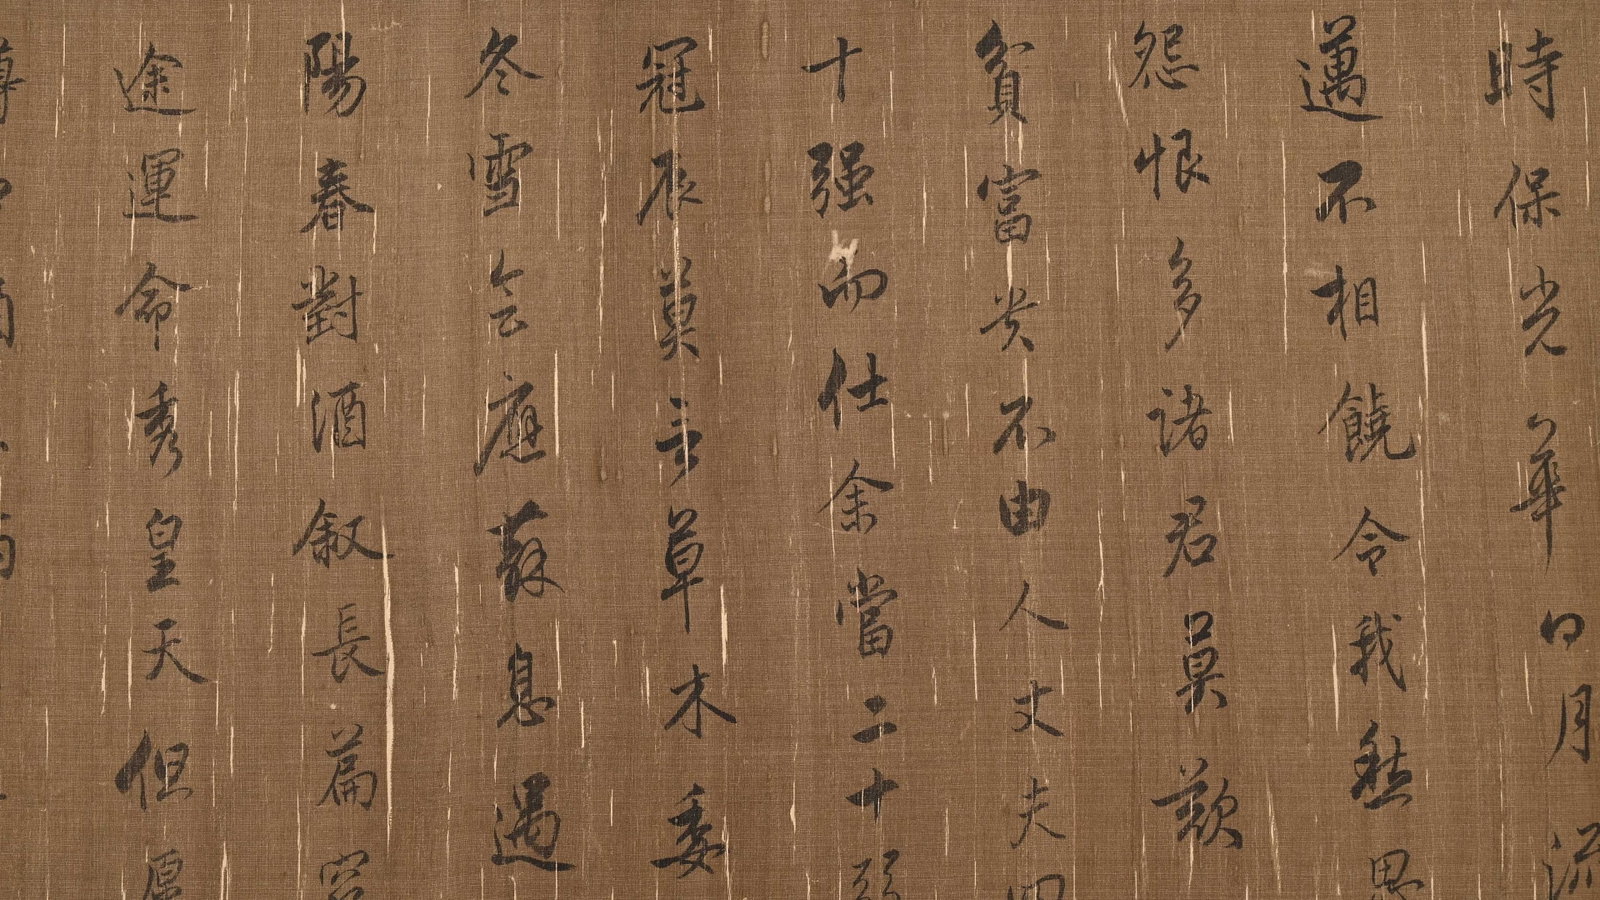 時保光華日月流
邁不相饒令我愁思
怨恨多諸君莫歎
貧富貴不由人丈夫四
十强而仕余當二十弱
冠辰莫言草木委
冬雪會應蘇息遇
陽春對酒叙長篇窮
途運命秀皇天但愿